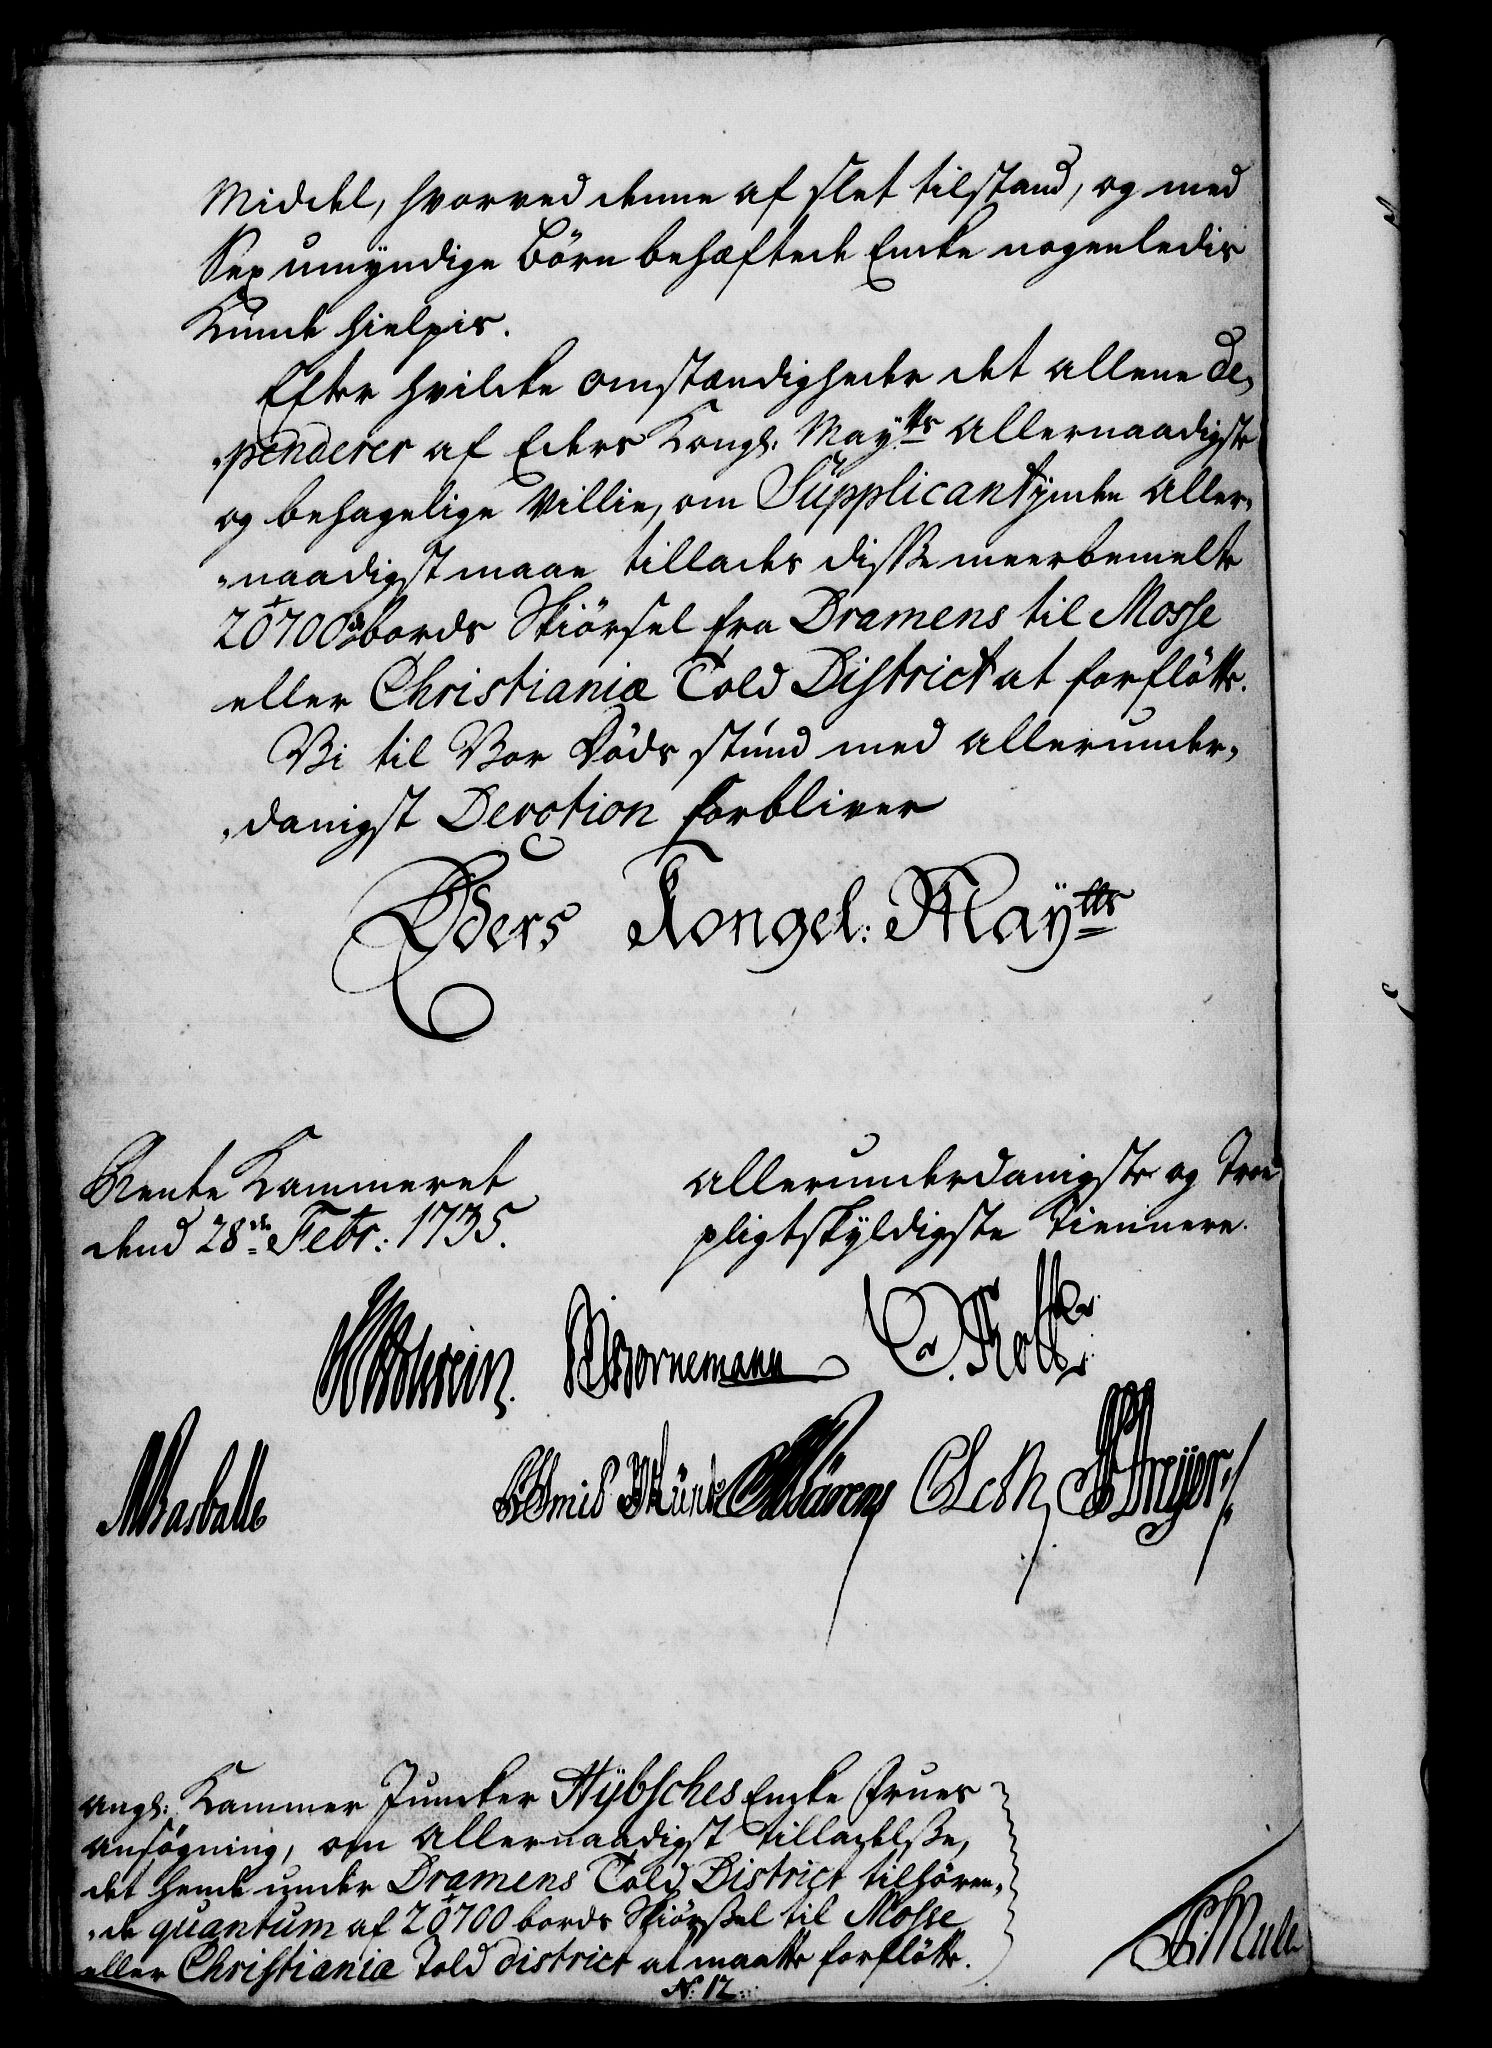 Middel, hvorved denne af slet tilstand, og med
Sex umyndige Börn behæftede Encke nogenledis
Kunde hielpis.
Efter hvilcke omstændigheder det allene de„
„penderer af Eders Kongl: Maÿtts allernaadigste
og behagelige Villie, om Supplicantinden aller„
„naadigst maae tillades disse meerbemelte
20700de bords Skiörsel fra Dramens til Mosse
eller Christianiæ Told District at forflötte.
Vi til Vor Döds stund med allerunder„
„danigst Devotion forbliver
Eders Kongel: Maÿtts
Rente Kammeret
dend 28de Febr: 1735.
allerunderdanigste og Troe
pligtskyldigste Tiennere.
Bornemann
C. Holst
CLeth
Dreÿer
angl: Kammer Juncker Hÿbsches Encke Frues
ansögning, om allernaadigst tilladelsse,
det hende under Dramens Told District tilhören„
„de quantum af 20700 bords Skiörssel til Mosse
eller Christiania Told district at maatte forflötte.
No: 12.